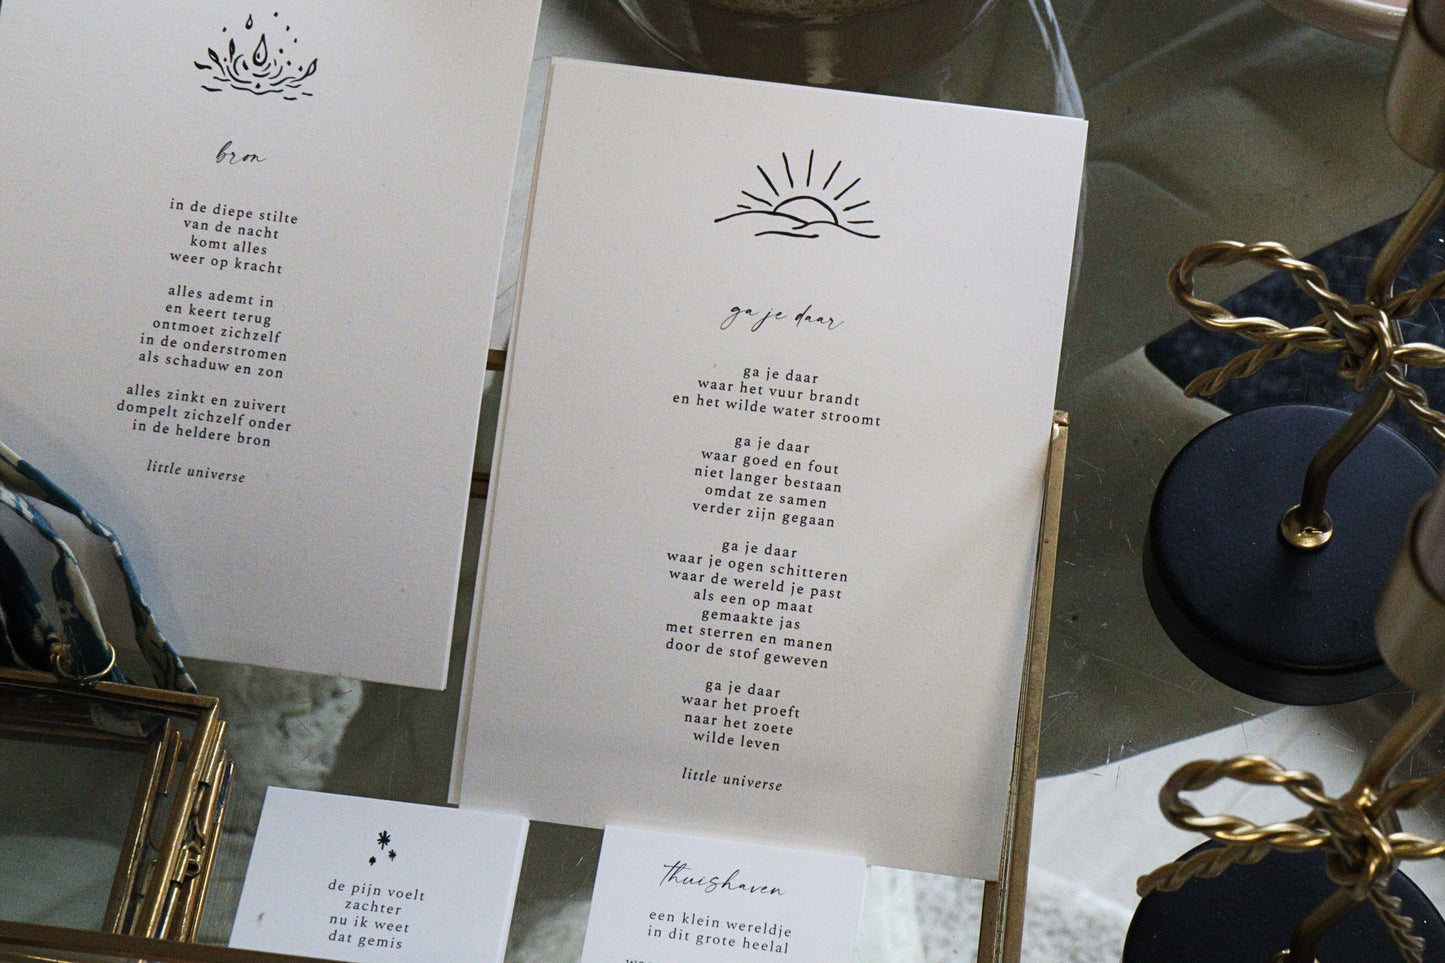 bron
in de diepe stilte
van de nacht
komt alles
weer op kracht
alles ademt in
en keert terug
ontmoet zichzelf
in de onderstromen
als schaduw en zon
alles zinkt en zuivert
dompelt zichzelf onder
in de heldere bron
little universe
ga je daar
ga je daar
waar het vuur brandt
en het wilde water stroomt
ga je daar
waar goed en fout
niet langer bestaan
omdat ze samen
verder zijn gegaan
ga je daar
waar je ogen schitteren
waar de wereld je past
als een op maat
gemaakte jas
met sterren en manen
door de stof geweven
ga je daar
waar het proeft
naar het zoete
wilde leven
little universe
de pijn voelt
zachter
nu ik weet
dat gemis
thuishaven
een klein wereldje
in dit grote heelal